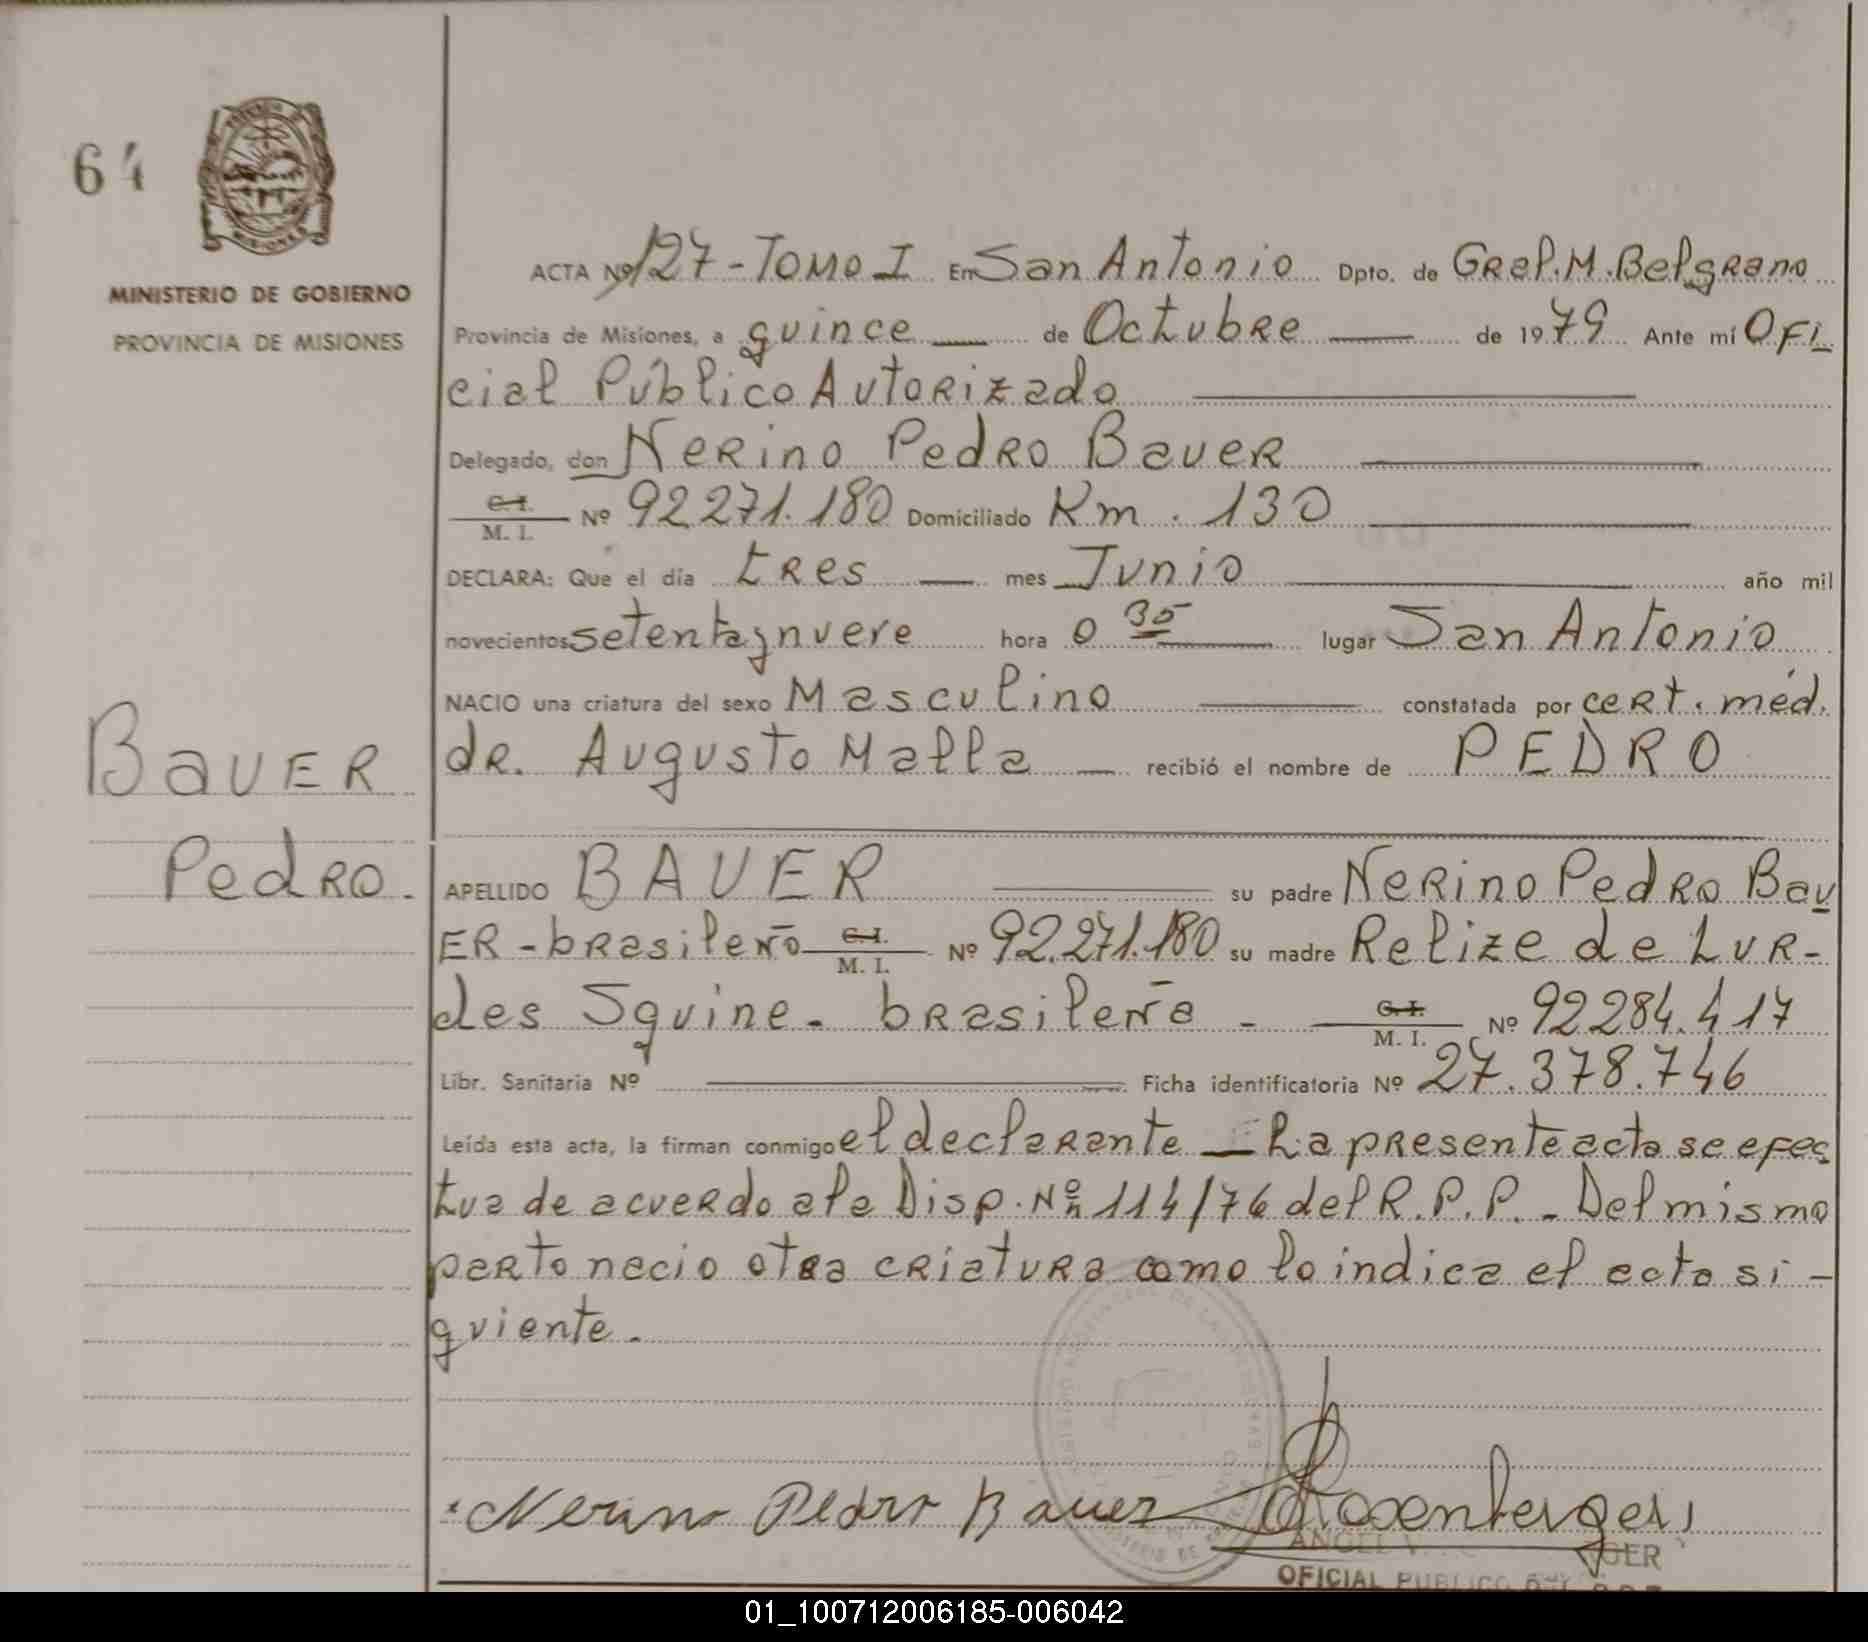 64
MISIONES
MINISTERIO DE GOBIERNO
PROVINCIA DE MISIONES
ACTA Nº 127 - TOMO I En San Antonio Dpto. de Gral. M. Belgrano
Provincia de Misiones, a quince de Octubre de 1979 Ante mí Ofi
cial Público Autorizado
Delegado, don Nerino Pedro Bauer
C. I.
M. I. Nº 92271.180 Domiciliado Km. 130
DECLARA: Que el día tres mes Junio año mil
novecientos setenta y nueve hora 0 35 lugar San Antonio
NACIO una criatura del sexo Masculino constatada por cert. méd.
dr. Augusto Malla recibió el nombre de PEDRO
Bauer
Pedro.
APELLIDO BAUER su padre Nerino Pedro Bau
ER - brasileño C. I. M. I. Nº 92.271.180 su madre Relize de Lur-
des Squine - brasileña - C. I. M. I. Nº 92284.417
Libr. Sanitaria Nº Ficha identificatoria Nº 27.378.746
Leída esta acta, la firman conmigo el declarante — La presente acta se efec
tua de acuerdo a la Disp. Nº 114/76 del R.P.P. - Del mismo
parto nacio otra criatura como lo indica el acta si-
guiente.
Nerino Pedro Bauer Rosenberger
ANGEL V. GER
OFICIAL PUBLICO
01_100712006185-006042